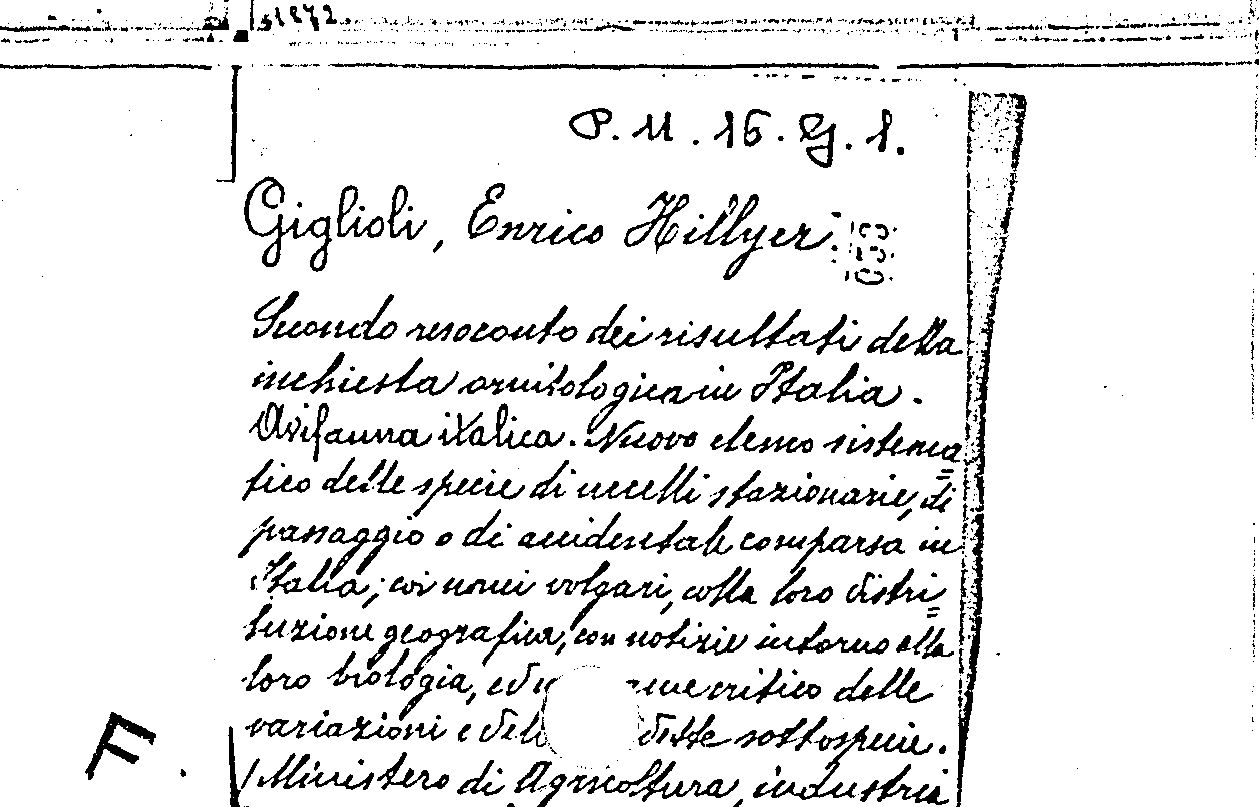 s1872
P. 11. 16. G. 1.
Giglioli, Enrico Hillyer.
Secondo resoconto dei risultati della
inchiesta ornitologica in Italia.
Avifauna italica. Nuovo elenco sistema=
tico delle specie di uccelli stazionarie, di
passaggio o di accidentale comparsa in
Italia; coi nomi volgari, colla loro distri=
buzione geografica, con notizie intorno alla
loro biologia, ed critico delle
variazioni e dette sottospecie.
(Ministero di Agricoltura, industria
F.